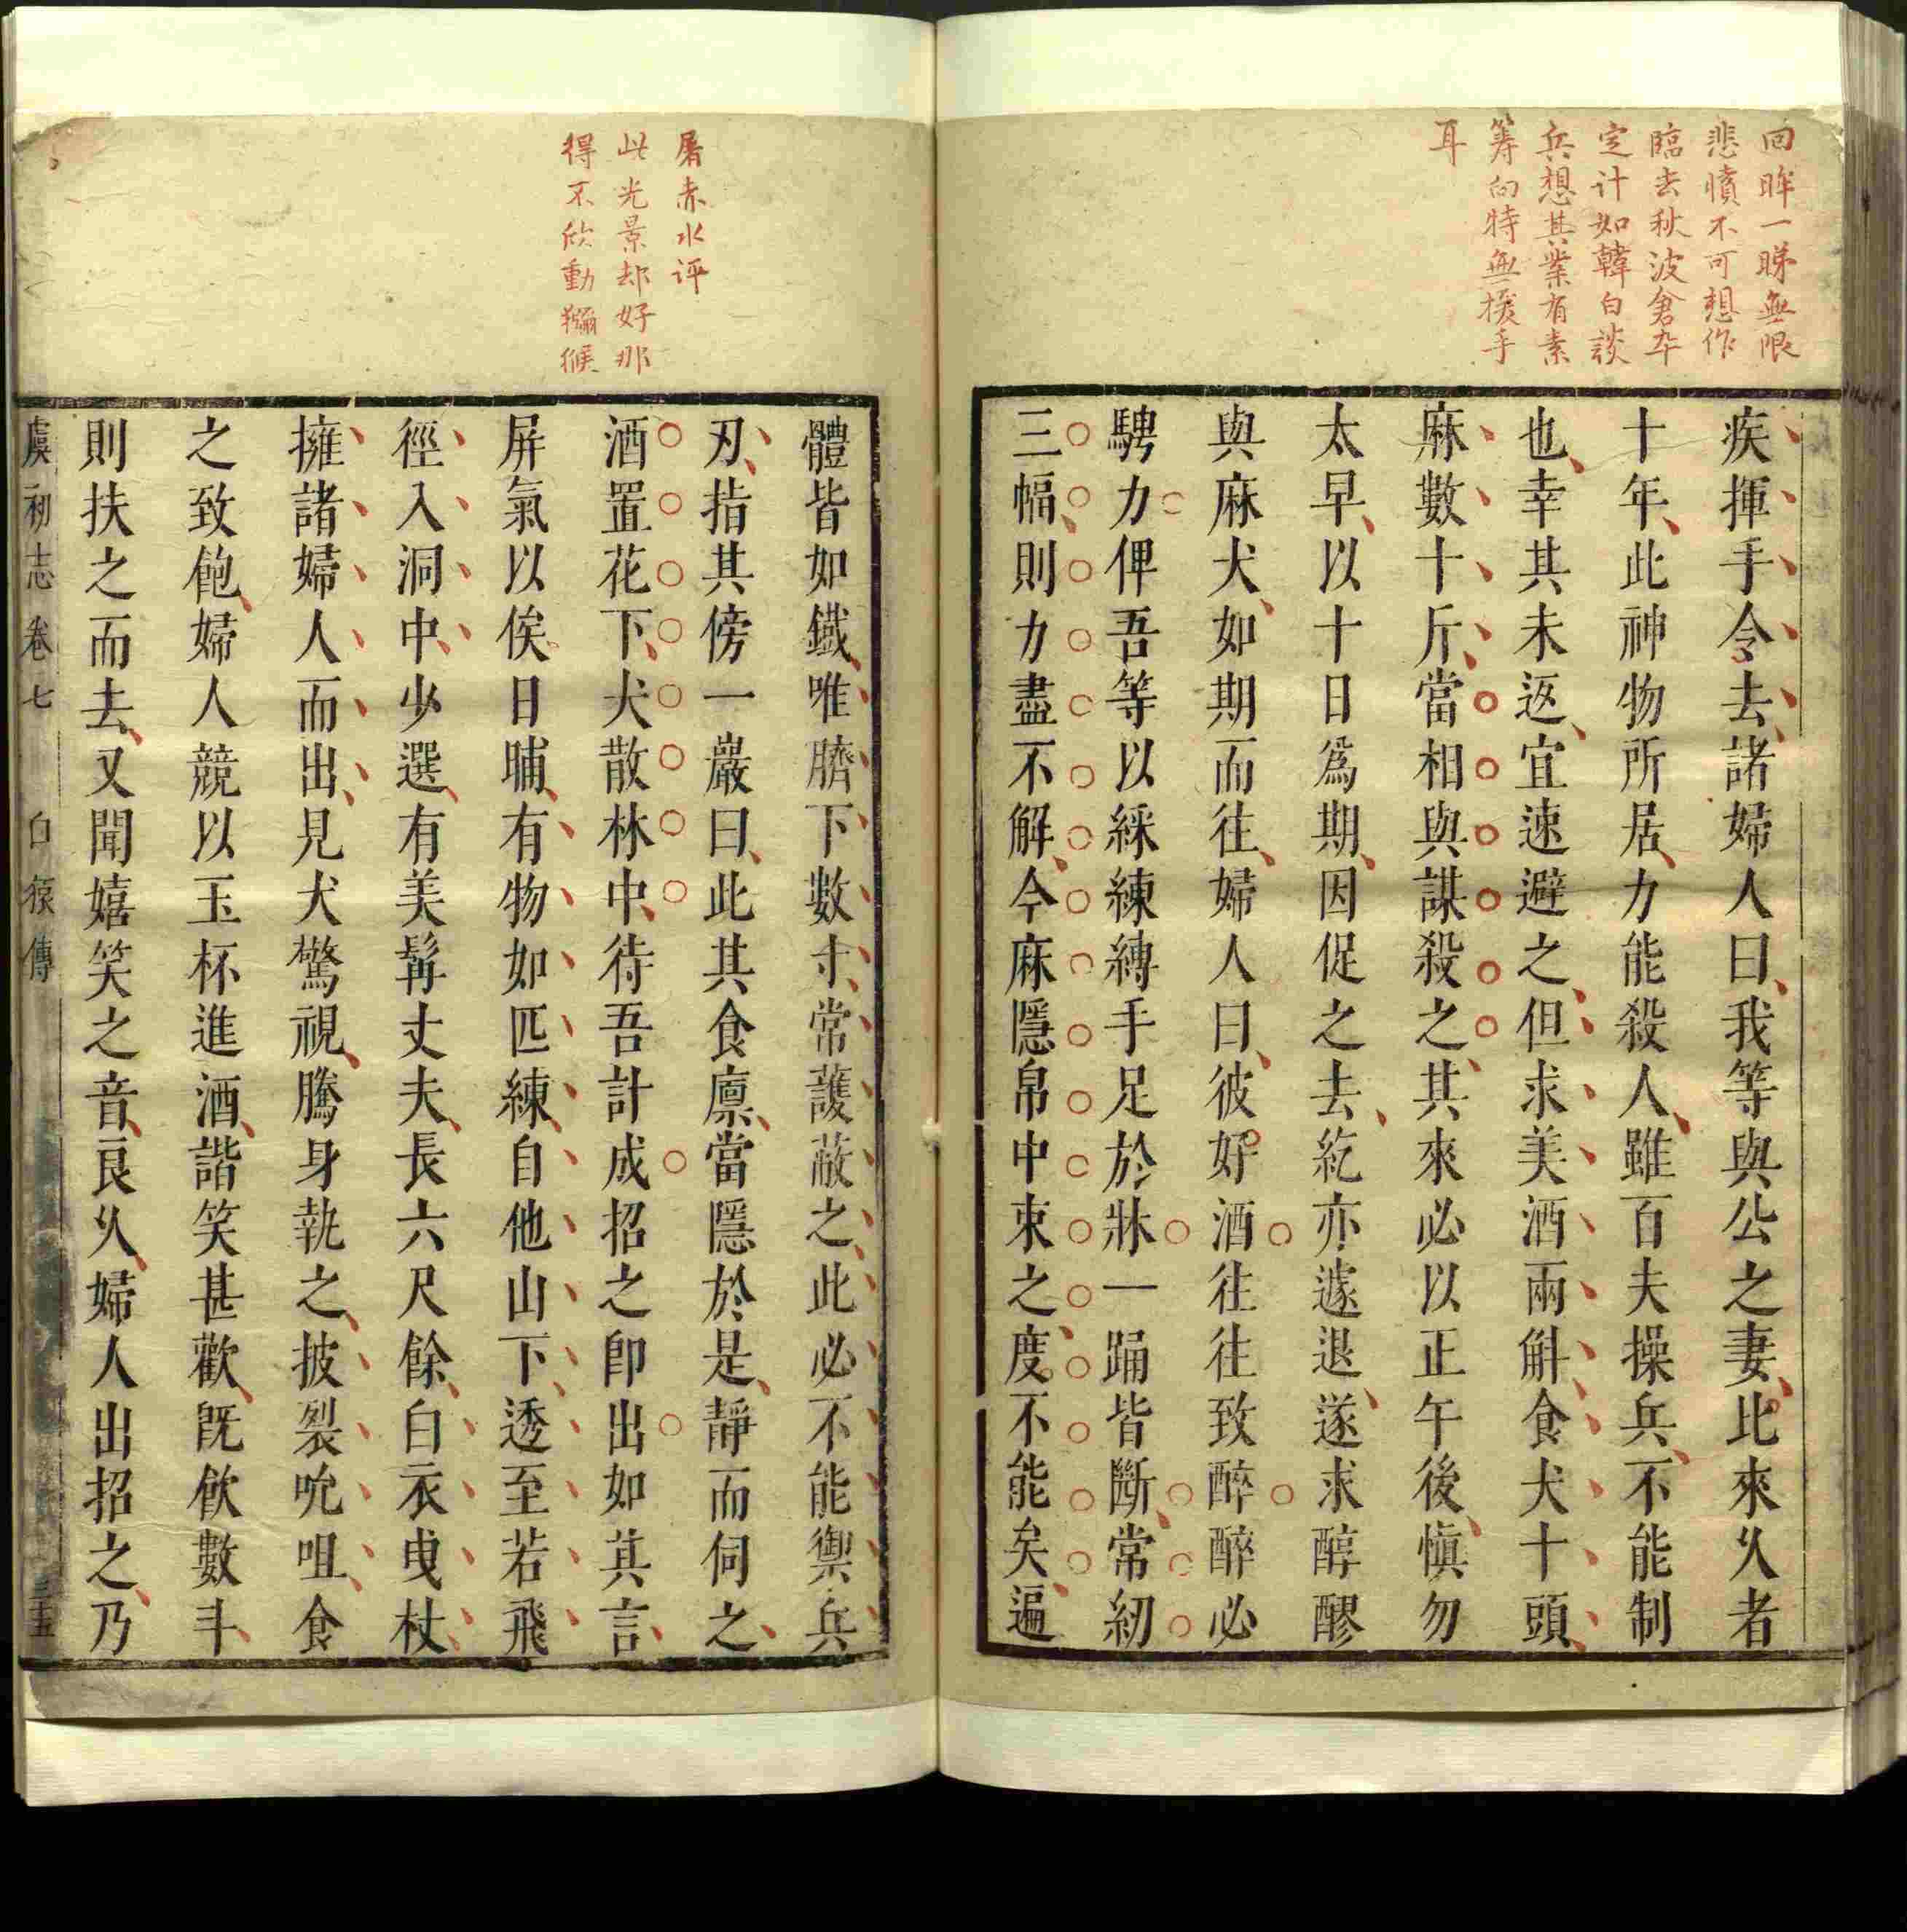 回眸一睇無限
悲憤不可想作
臨去秋波倉卒
定計如韓白談
兵想其業有素
籌向特無援手
耳
疾揮手令去諸婦人曰我等與公之妻比來久者
十年此神物所居力能殺人雖百夫操兵不能制
也幸其未返宜速避之但求美酒兩斛食犬十頭
麻數十斤當相與謀殺之其來必以正午後愼勿
太早以十日爲期因促之去紇亦遽退遂求醇醪
與麻犬如期而往婦人曰彼好酒往往致醉醉必
騁力俾吾等以綵練縛手足於牀一踊皆斷常紉
三幅則力盡不解今麻隱帛中束之度不能矣遍
屠赤水評
此光景却好那
得不欣動獼猴
體皆如鐵唯臍下數寸常護蔽之此必不能禦兵
刃指其傍一巖曰此其食廩當隱於是靜而伺之
酒置花下犬散林中待吾計成招之卽出如其言
屏氣以俟日晡有物如匹練自他山下透至若飛
徑入洞中少選有美髯丈夫長六尺餘白衣曳杖
擁諸婦人而出見犬驚視騰身執之披裂吮咀食
之致飽婦人競以玉杯進酒諧笑甚歡旣飮數斗
則扶之而去又聞嬉笑之音良久婦人出招之乃
虞初志 卷七 白猿傳 三十五